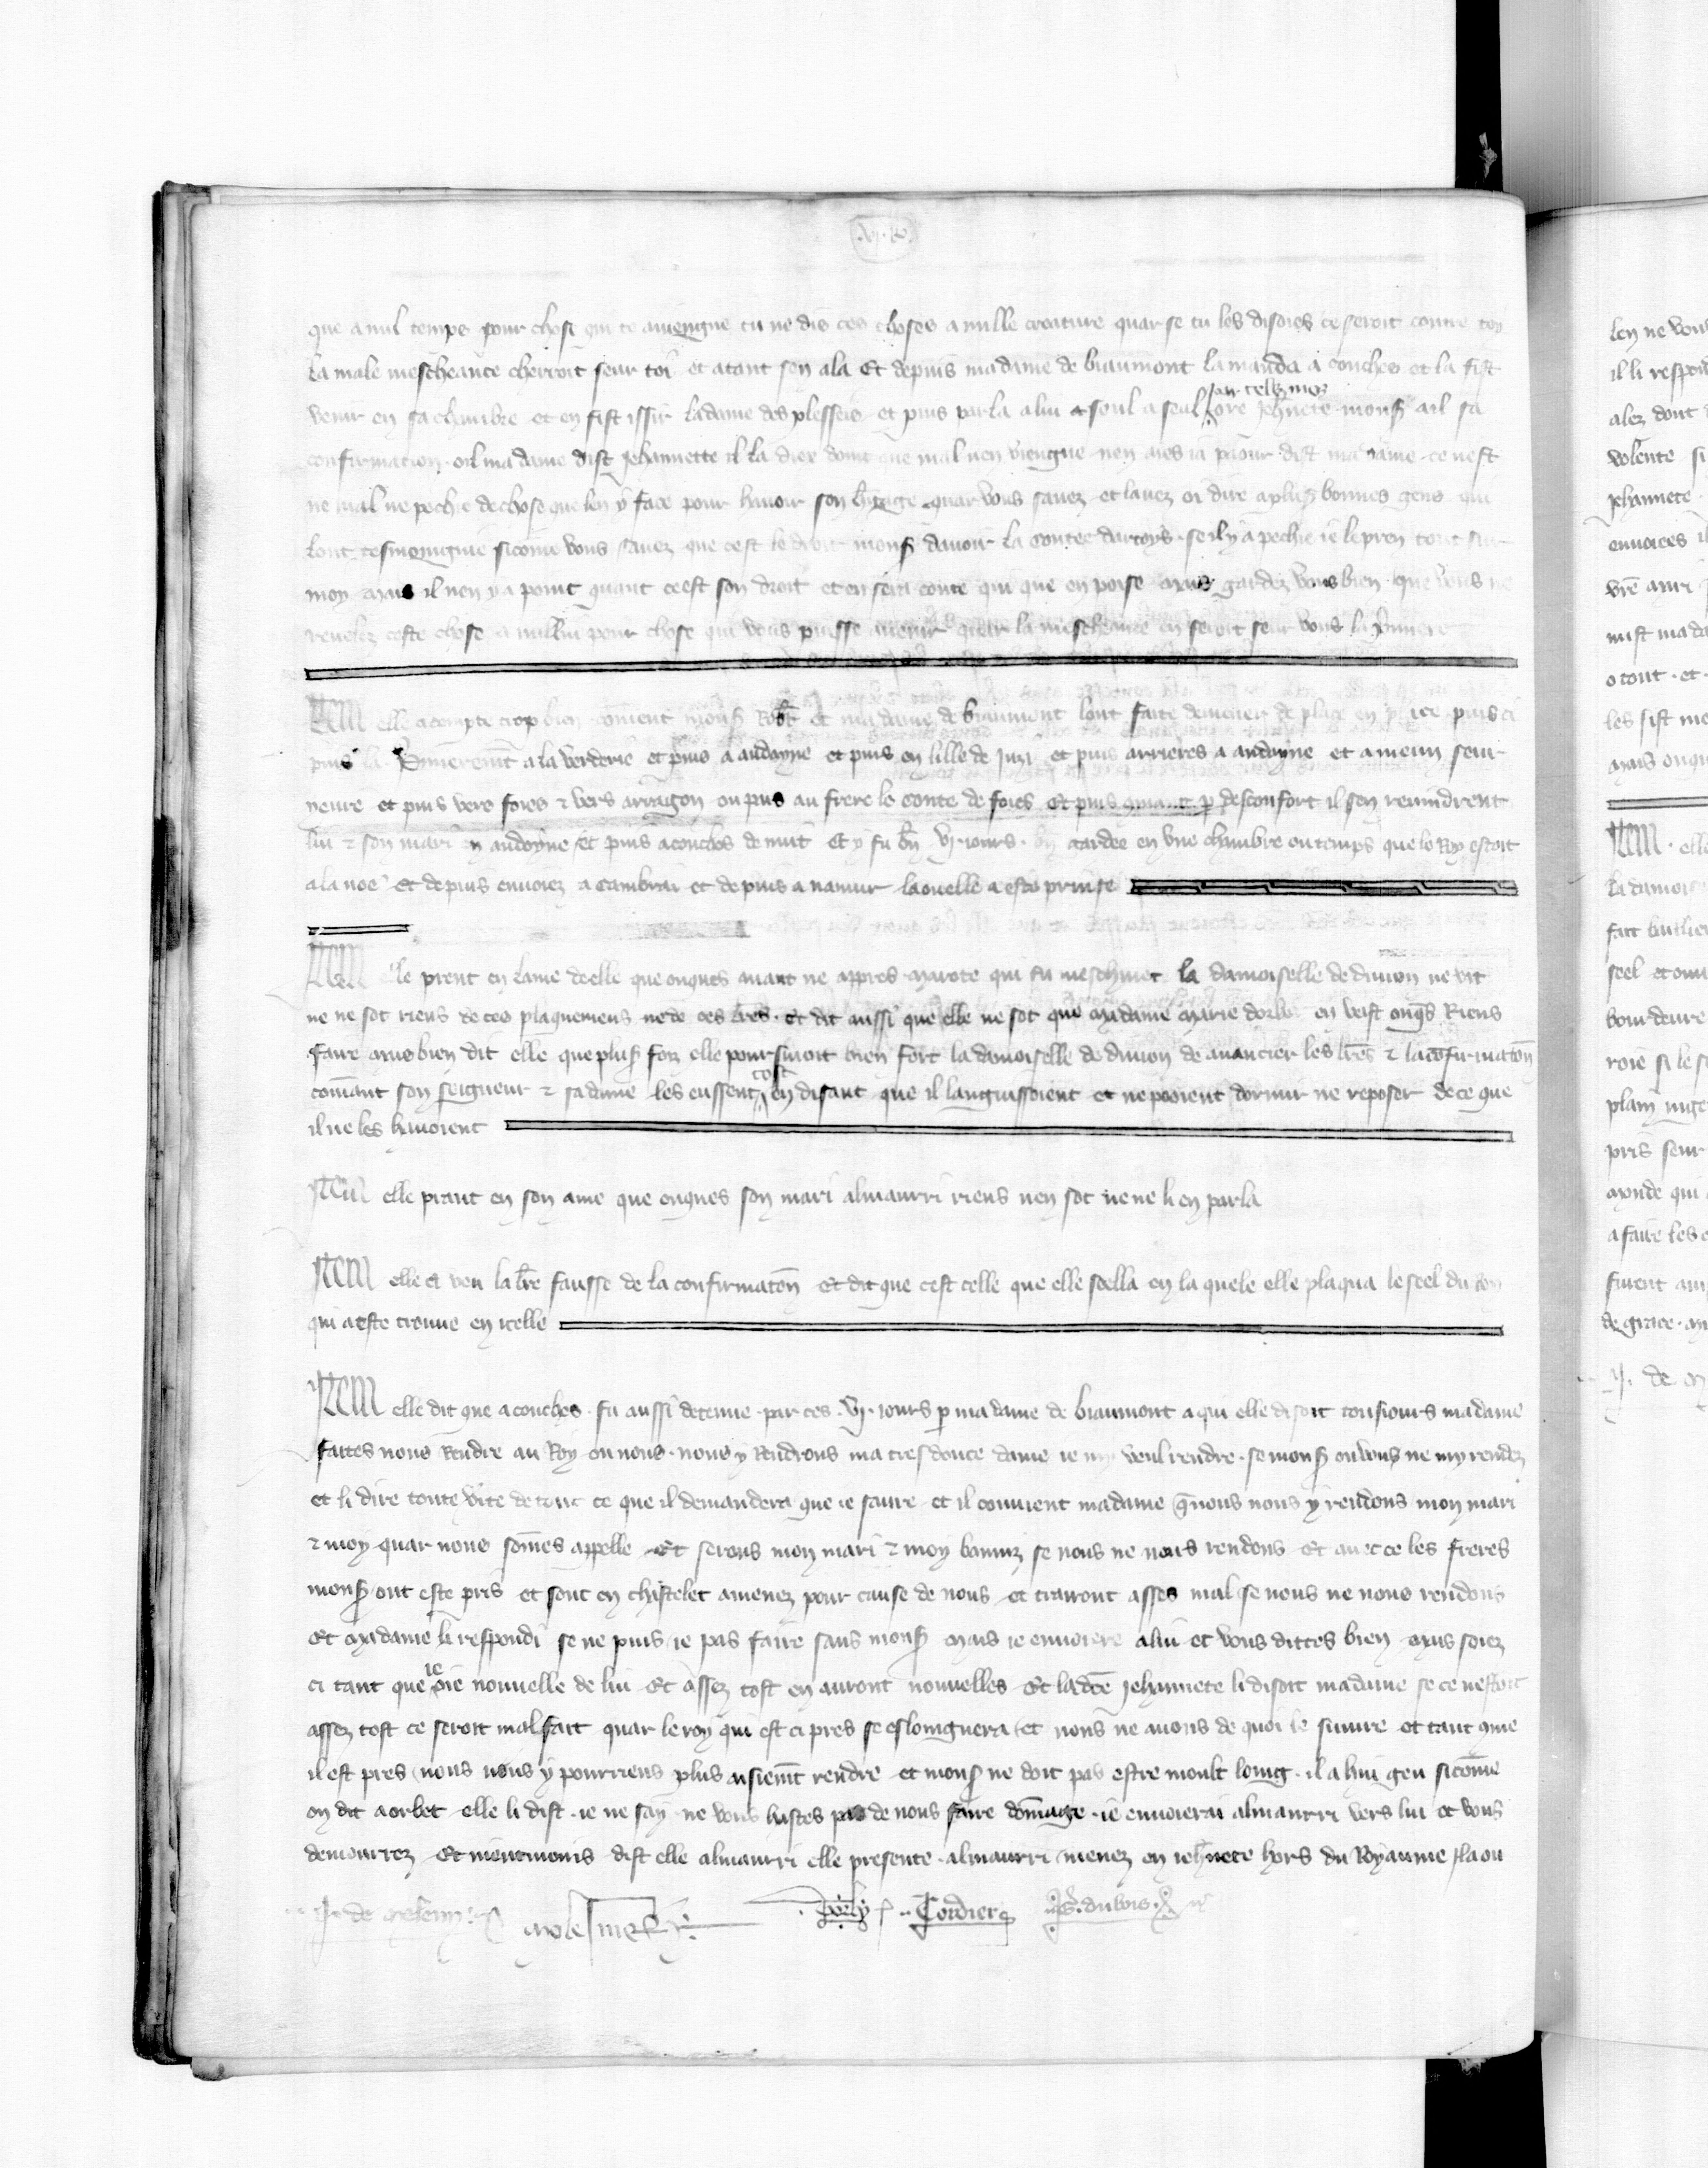 que a nul temps pour chose qui te aviengne tu ne dis ces choses a nulle creature quar se tu les disoies ce seroit contre toy
la male mescheance cherroit seur toi et atant sen ala Et depuis madame de biaumont la manda a conches et la fist
venir en sa chambre et en fist issir la dame des plesseis et puis parla a lui seul a seul par telz moz ore Jehnete monsr a il sa
confirmacion oil madame dist Jehannette il la diex doint que mal nen viengne nen aies ia paour dist madame ce nest
ne mal ne pechie de chose que len y face pour havoir son heritage quar vous savez et lavez oi dire a plus bonnes gens qui
lont tesmoingnie si come vous savez que cest le droit monsr davoir la contee dartoys se il y a pechie ie le pren tout sur
moy mais il nen y a point quant ce est son droit et en sera conte qui que en poise mais gardez vous bien que vous ne
revelez ceste chose a nullui pour chose qui vous puisse avenir quar la mescheance en seroit seur vous la premiere
Item elle a compte trop bien coment monsr Robt et madame de biaumont lont faite demener de place en place puis ci
puis la premieremt a la verderie et puis a andoyne et puis en lille de Juzi et puis arrieres a andoyne et a meun seur
yeure et puis vers foies & vers arragon ou pais au frere le conte de foies Et puis desconfort il sen revindrent
lui & son mari en andoyne et puis a conches de nuit Et y fu bn vj iours gardee en une chambre ou temps que le Roy estoit
a la noe Et depuis envoiez a Cambrai et depuis a namur la ou elle a este prinse
Item elle prent en lame de elle que onques avant ne appres marote qui fu meschinet la damoiselle de divion ne vit
ne ne sot riens de ces plaquemens ne de ces lres Et dit aussi que elle ne sot que madame marie en veist onqs Riens
faire mais bien dit elle que plusrs foiz elle poursivoit bien fort la damoiselle de divion de avancier les lres & la cofirmaton
comant son seigneur & sa dame les eussent tost en disant que il languissoient et ne pooient dormir ne reposer de ce que
il ne les havoient
Item elle prant en son ame que onques son mari almaurri riens nen sot ne ne li en parla
Item elle a veu la lre fausse de la confirmaton Et dit que cest celle que elle seella en la quele elle plaqua le seel du roy
qui a este trouve en icelle
Item elle dit que a conches fu aussi detenue par ces vj iours p madame de biaumont a qui elle disoit tousiours madame
faites nous Rendre au Roy ou nous nous y Rendrons ma tres douce dame ie my veul rendre se monsr ou vous ne my rendez
et li dire toute vite de tout ce que il demandera que ie saure et il convient madame q nous nous y rendons mon mari
& moy quar nous somes appelle Et serons mon mari & moy banniz se nous ne nous rendons Et avec ce les freres
monsr ont este pris et sont en chastelet amenez pour cause de nous et trairont asses mal se nous ne nous rendons
Et madame li respondi se ne puis ie pas faire sans monsr mais ie envoiere a lui et vous dittes bien mais soiez
ci tant que ie oie nouvelle de lui Et assez tost en auront nouvelles Et ladte Jehannete li disoit madame se ce nestoit
assez tost ce seroit mal fait quar le roy qui est ci pres se esloingnera et nous ne avons de quoi le suivre et tant que
il est pres nous nous y pourriens plus aisiemt rendre et monsr ne doit pas estre moult loing il a hui geu si come
on dit a orbec elle li dist ie ne say ne vous hastes pas de nous faire domage ie envoierai almaurri vers lui et vous
demourrez Et dist elle almaurri elle presente almaurri menez en iehnete hors du Royaume la ou
Cordier